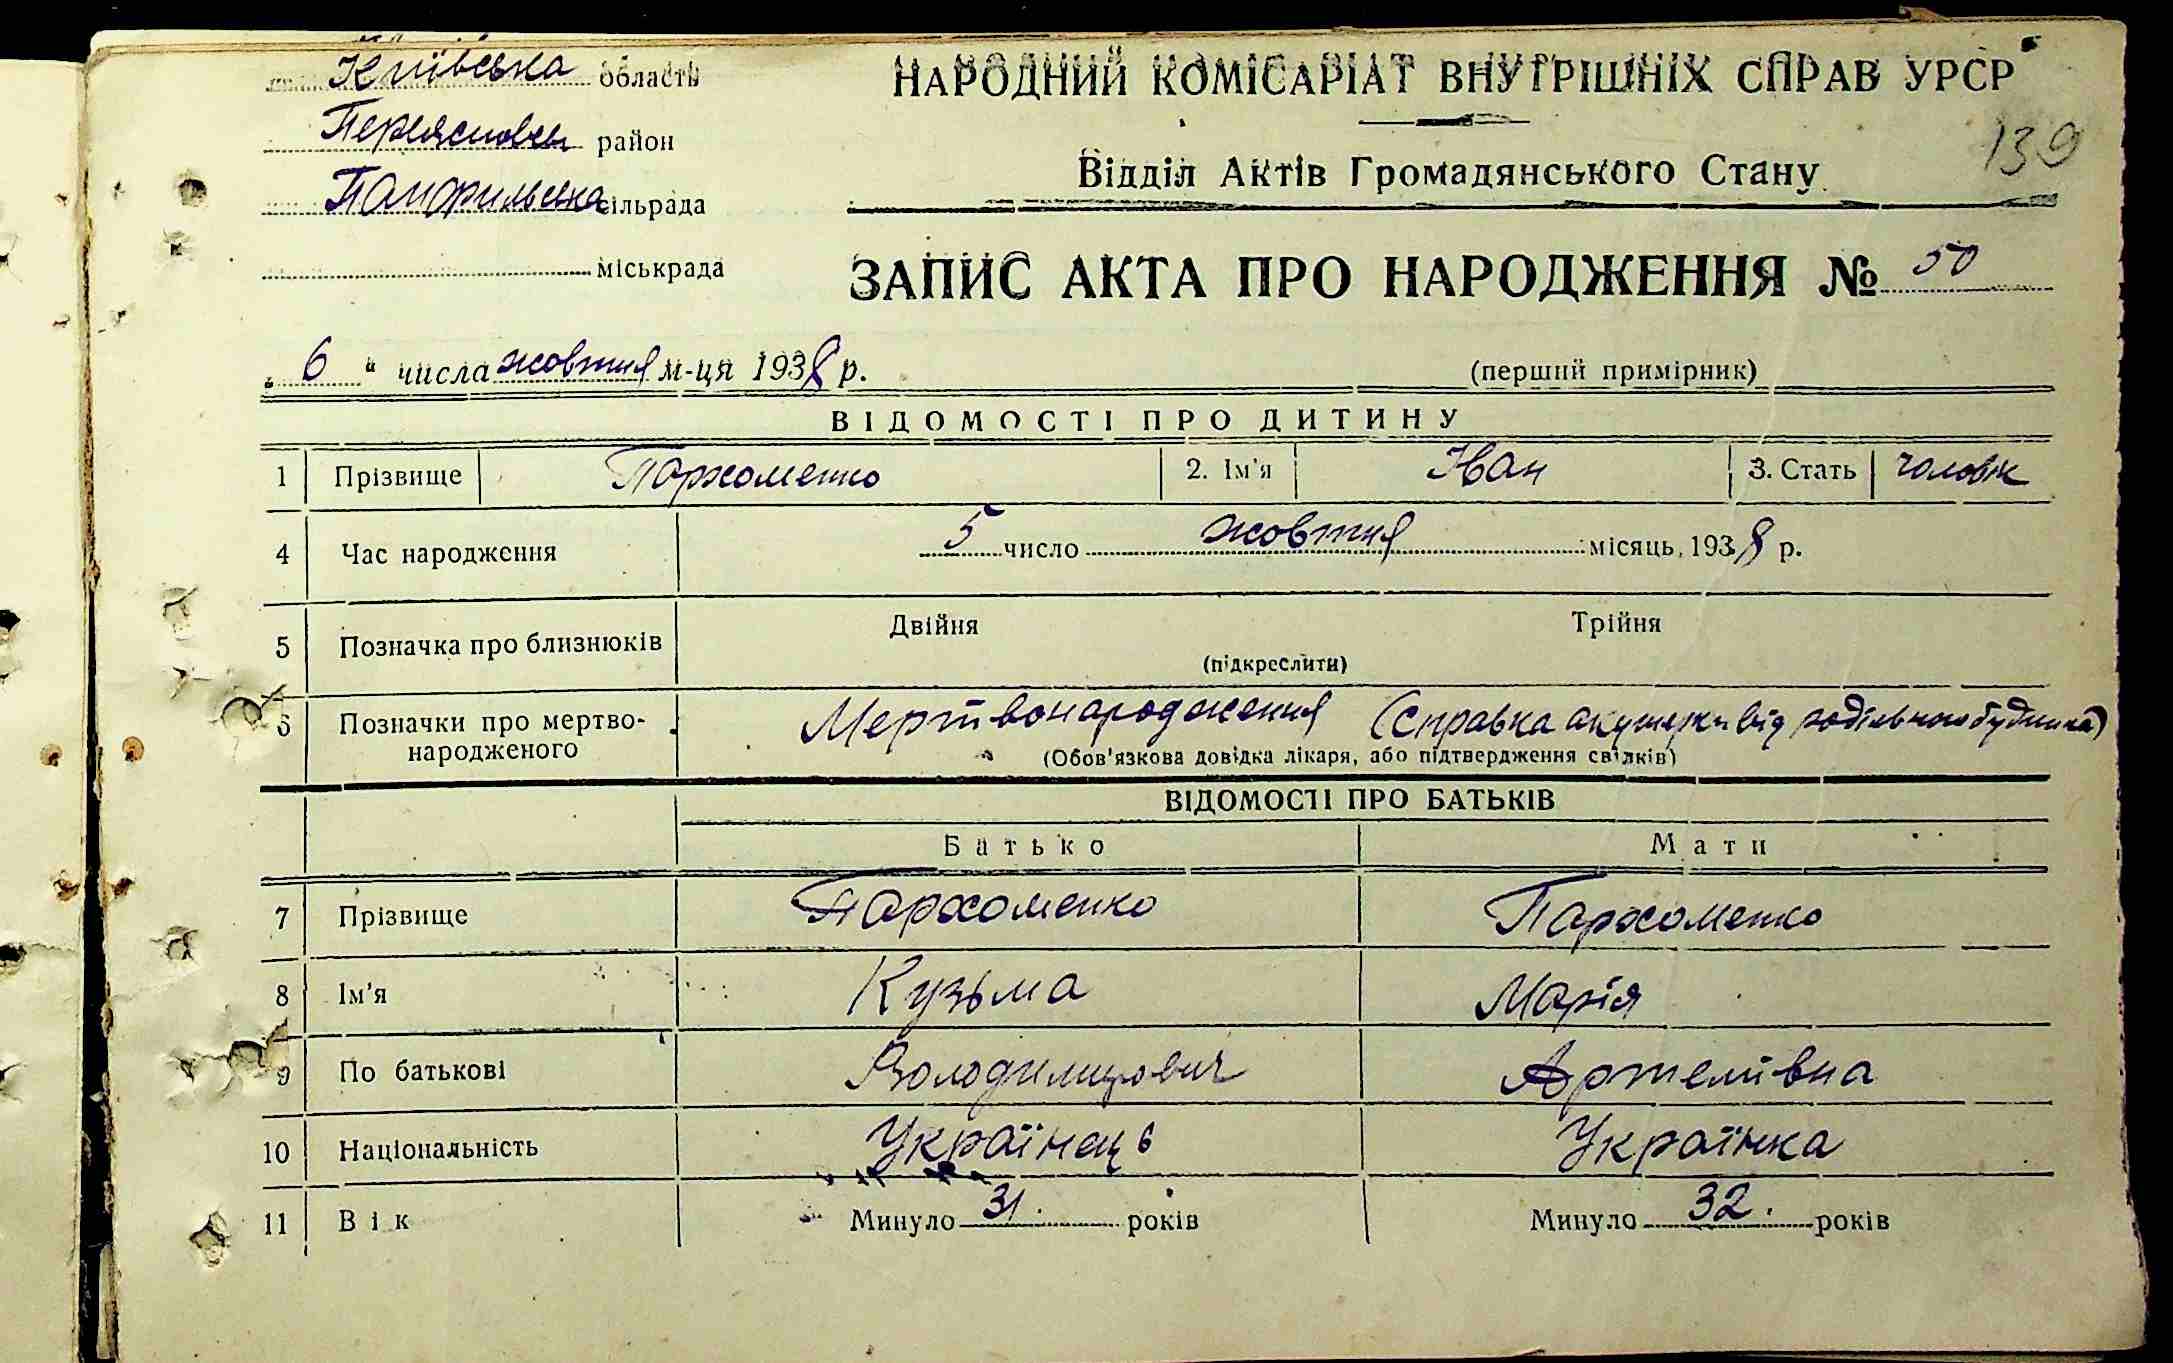 Київська область
НАРОДНИЙ КОМІСАРІАТ ВНУТРІШНІХ СПРАВ УРСР
район
139
Відділ Актів Громадянського Стану
Панфильська сільрада
міськрада
ЗАПИС АКТА ПРО НАРОДЖЕННЯ № 50
„ 6 “ числа жовтня м-ця 1938 р.
(перший примірник)
ВІДОМОСТІ ПРО ДИТИНУ
1 Прізвище Пархоменко 2. Ім'я Іван 3. Стать чоловік
4 Час народження 5 число жовтня місяць, 1938 р.
5 Позначка про близнюків Двійня Трійня
(підкреслити)
6 Позначки про мертво- Мертвонародження (справка акушерки від родільного будинка)
народженого (Обов'язкова довідка лікаря, або підтвердження свідків)
ВІДОМОСТІ ПРО БАТЬКІВ
Батько Мати
7 Прізвище Пархоменко Пархоменко
8 Ім'я Кузьма Марія
9 По батькові Володимирович Артемівна
10 Національність Українець Українка
11 Вік Минуло 31. років Минуло 32. років